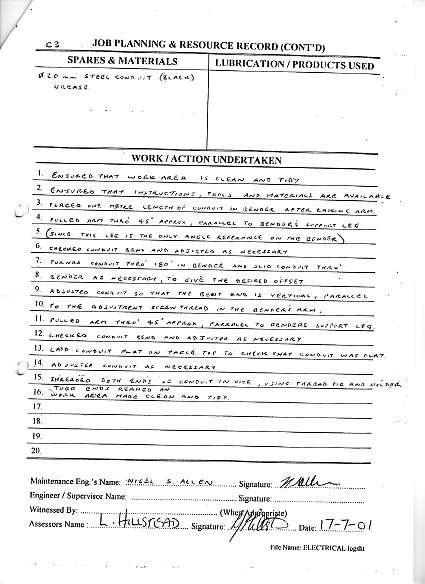 C3
JOB PLANNING & RESOURCE RECORD (CONT'D)
SPARES & MATERIALS
LUBRICATION / PRODUCTS USED
Ø 20 mm STEEL CONDUIT (BLACK)
GREASE
WORK / ACTION UNDERTAKEN
1. ENSURED THAT WORK AREA IS CLEAN AND TIDY
2. ENSURED THAT INSTRUCTIONS, TOOLS AND MATERIALS ARE AVAILABLE
3. PLACED ONE METRE LENGTH OF CONDUIT IN BENDER AFTER RAISING ARM
4. PULLED ARM THRO' 45° APPROX, PARALLEL TO BENDER'S SUPPORT LEG
5. (SINCE THIS LEG IS THE ONLY ANGLE REFERANCE ON THE BENDER)
6. CHECKED CONDUIT BEND AND ADJUSTED AS NECESSARY
7. TURNED CONDUIT THRO' 180° IN BENDER AND SLID CONDUIT THRO'
8. BENDER AS NECESSARY, TO GIVE THE DESIRED OFFSET
9. ADJUSTED CONDUIT SO THAT THE BENT END IS VERTICAL, PARALLEL
10. TO THE ADJUSTMENT SCREW THREAD IN THE BENDER'S ARM.
11. PULLED ARM THRO' 45° APPROX, PARALLEL TO BENDERS SUPPORT LEG.
12. CHECKED CONDUIT BEND AND ADJUSTED AS NECESSARY
13. LAID CONDUIT FLAT ON TABLE TOP TO CHECK THAT CONDUIT WAS FLAT.
14. ADJUSTED CONDUIT AS NECESSARY
15. THREADED BOTH ENDS OF CONDUIT IN VICE, USING THREAD DIE AND HOLDER
TUBE ENDS REAMED AN
16. WORK AREA MADE CLEAN AND TIDY.
17.
18.
19.
20.
Maintenance Eng.'s Name: NIGEL S. ALLEN Signature: N Allen
Engineer / Supervisor Name: Signature:
Witnessed By: (When Appropriate)
Assessors Name: L. HILLSTEAD Signature: Date: 17-7-01
File Name: ELECTRICAL logsht